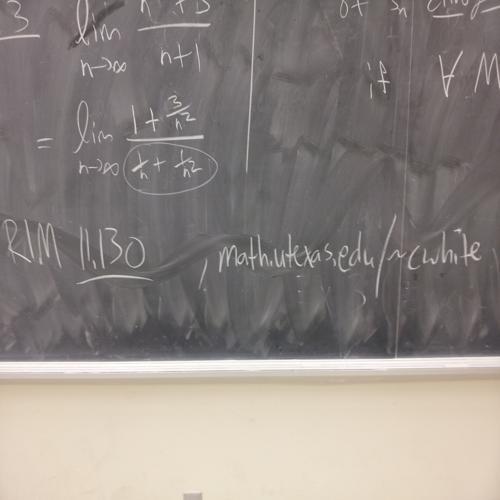 3 lim n²+3 / n+1
n→∞
= lim 1 + 3/n² / 1/n + 1/n²
n→∞
of
if ∀ M
RLM 11.130 , math.utexas.edu/~cwhite